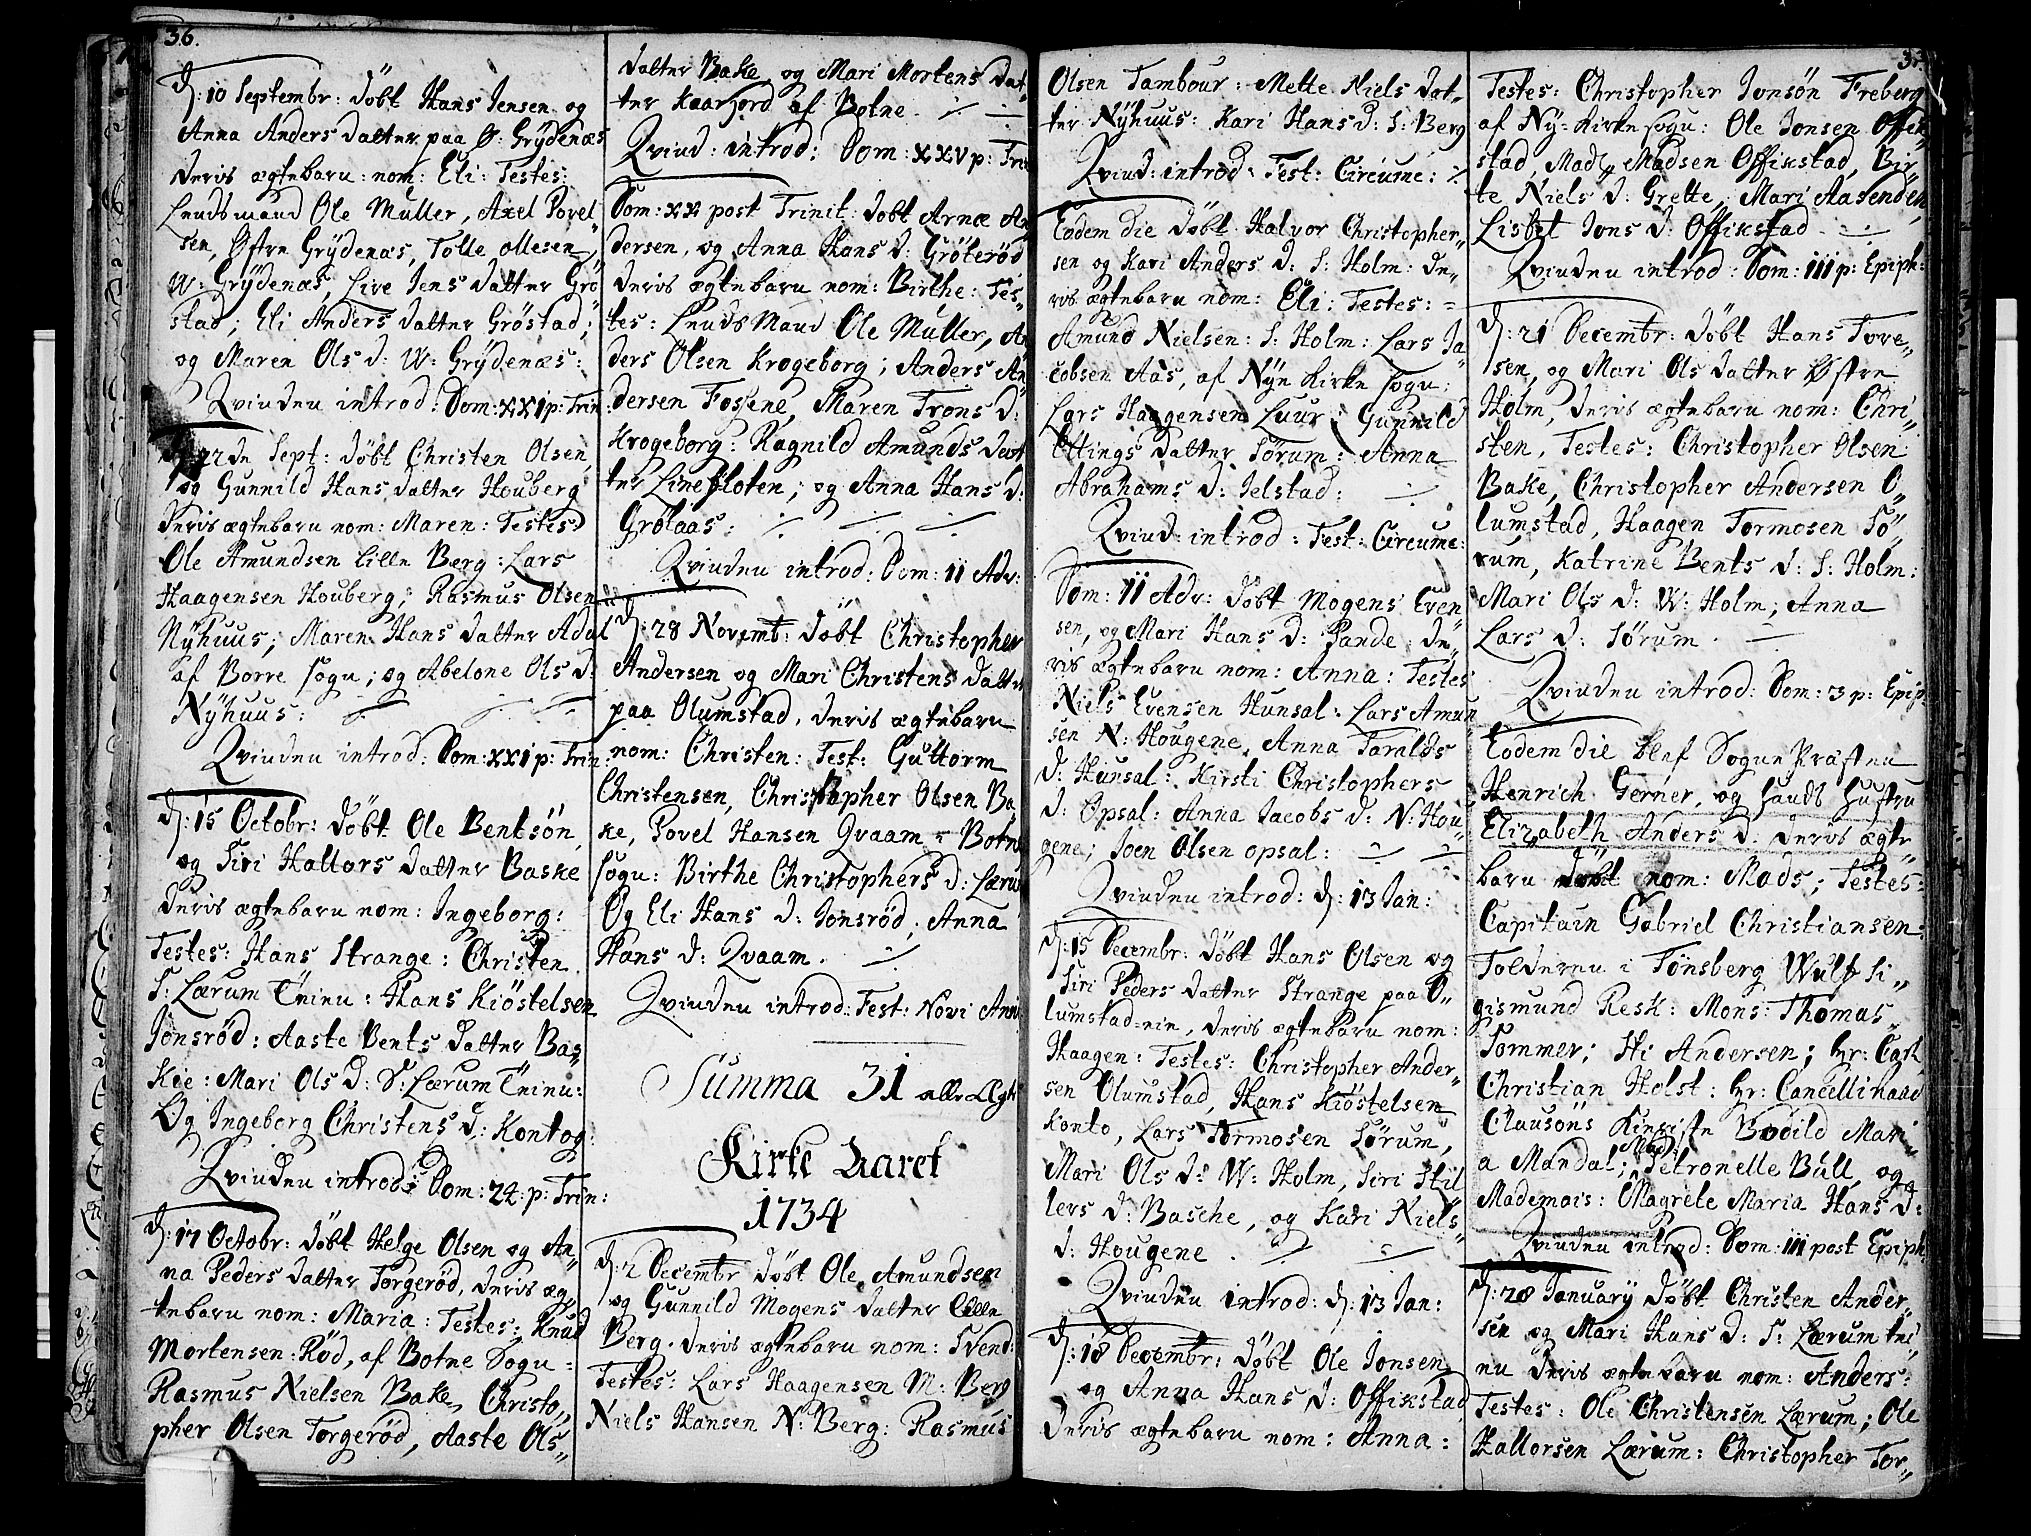 36.
d: 10 Septembr: döbt Hans Jensen og
Anna Anders datter paa Ø: Grÿdenæs
deris ægtebarn: nom: Eli: Testes:
Lends mand Ole Muller, Axel Povel
sen, Østre Grÿdenæs, Tolle Olesen
W: Grÿdenæs, Live Jens datter Grö
stad; Eli Anders datter Gröstad;
og Maren Ols d: W: Grÿdenæs:
Qvinden introd: Dom: XXI p: Trin:
22de Sept: döbt Christen Olsen,
og Gunnild Hans datter Houberg
deris ægtebarn nom: Maren: Testes:
Ole Amundsen lille Berg: Lars
Haagensen Houberg; Rasmus Olsen
Nÿhuus; Maren Hans datter Adal
af Borre sogn; og Abelone Ols d:
Nÿhuus:
Qvinden introd: Dom: XXI p: Trin:
d: 15 Octobr: döbt Ole Bentsön,
og Siri Hallors datter Baske
deris ægtebarn nom: Ingeborg:
Testes: Hans Strange: Christen
S: Lærum Enine: Hans Kiöstelsen
Jonsröd: Aaste Bents datter Bas,,
kie: Mari Ols d: S: Lærum Enine:
Og Ingeborg Christens d: Kontog:
Qvinden introd: Dom: 24: p: Trin:
d: 17 Octobr: döbt Helge Olsen og An,,
na Peders datter Torgeröd, deris æg,,
tebarn nom: Maria: Testes: Knud
Mortensen Röd, af Botne Sogn:
Rasmus Nielsen Bake, Christo,,
pher Olsen Torgeröd, Aaste Ols,,
datter Bake, og Mari Mortens dat,,
ter Kaarjord af Botne.
Qvind: introd: Dom: XXV p: Trin
Dom: XX post Trinit: döbt Arnæ An
dersen, og Anna Hans d: Gröteröd
deris ægtebarn nom: Birthe: Tes,,
tes: Lends Mand Ole Muller, An
ders Olsen Krogeborg; Anders An
dersen Fossene, Maren Trons d:
Krogeborg: Ragnild Amunds dat
ter Linefloten; og Anna Hans d:
Grölaas:
Qvinden introd: Dom: II Adv:
d: 28 Novemb: döbt Christopher
Andersen og Mari Christens datter
paa Olumstad, deris ægtebarn
nom: Christen: Test: Guttorm
Christensen, Christopher Olsen Ba
ke, Povel Hansen Qvaam Botne
sogn: Birthe Christophers d: Lærum
Og Eli Hans d: Jonsröd, Anna
Hans d: Qvaam.
Qvinden introd: Fest: Novi Anni
Summa 31 alle Ægte
Kirke Aaret
1734
d: 2 Decembr döbt Ole Amundsen
og Gunnild Mogens datter Lille
Berg. deris ægtebarn nom: Svend:
Testes: Lars Haagensen M: Berg
Niels Hansen N: Berg: Rasmus
Olsen Tambour: Mette Niels dat,,
ter Nÿhuus: Kari Hans d: S: Berg
Qvind: introd: Fest: Circume:
Eodem die döbt Halvor Christopher,,
sen og Kari Anders d: S: Holm: de,,
ris ægtebarn nom: Eli: Testes:
Amund Nielsen: S: Holm: Lars Ja,,
cobsen Aas, af Nÿe Kirke sogn:
Lars Haagensen Luur: Gunnild
Ellings datter Sörum: Anna
Abrahams d: Jelstad:
Qvind: introd: Fest: Circume:
Dom: II Adv: döbt Mogens Even
sen, og Mari Hans d: Pande de,,
ris ægtebarn nom: Anna: Testes
Niels Evensen Hunsal: Lars Amun
sen N: Hougene, Anna Taralds
d: Hunsal: Kirsti Christophers
d: Opsal: Anna Jacobs d: N: Hou,,
gene; Joen Olsen opsal:
Qvinden introd: d: 13 Jan:
d: 15 Decembr: döbt Hans Olsen og
Siri Peders datter Strange paa O,,
lumstad-eie, deris ægtebarn nom:
Haagen: Testes: Christopher Ander,,
sen Olumstad, Hans Kiöstelsen
Konto, Lars Tormosen Sörum,
Mari Ols d: W: Holm, Siri Hil
lers d: Basche, og Kari Niels
d: Hougene.
Qvinden introd: d: 13 Jan:
d: 18 Decembr: döbt Ole Jonsen
og Anna Hans d: Offikstad
deris ægtebarn nom: Anna:
Testes: Christopher Jonsön Freberg
af Nÿ-Kirke sogn: Ole Jonsen Offik,,
stad, Mads Madsen Offikstad, Bir,,
te Niels d: Grette, Mari Aasenden,
Lisbet Jons d: Offikstad
Qvinden introd: Dom: III p: Epiph:
d: 21 Decembr: döbt Hans Tore,,
sen, og Mari Ols datter Østre
Holm, deris ægtebarn nom: Chri,,
sten, Testes: Christopher Olsen
Bake, Christopher Andersen O,,
lumstad, Haagen Tormosen Sö,,
rum, Katrine Bents d: S: Holm:
Mari Ols d: W: Holm, Anna
Lars d: Sörum.
Qvinden introd: Dom: 3 p: Epip:
Eodem die blef Sogne Præsten
Henrich Gerner, og hands hustru
Elizabeth Anders d: deris ægte,,
barn döbt nom: Mads; Testes:
Capitain Gabriel Christiansen:
Tolderen i Tönsberg Wulf Si,,
gismund Resk: Mons: Thomas
Sommer; Hi Andersen; hr: Carl
Christian Holst: hr: Cancelliraad
Clausöns Bodild Mari
a Mandal; Mad: Petronelle Bull, og
Mademois: Magrete Maria Hans d:
Qvinden introd: Dom: III post Epiph
d: 28 Januarÿ döbt Christen Ander,,
sen og Mari Hans d: S: Lærum Eni
ne deris ægtebarn nom: Anders:
Testes: Ole Christensen Lærum; Ole
Hallorsen Lærum: Christopher Tor,,